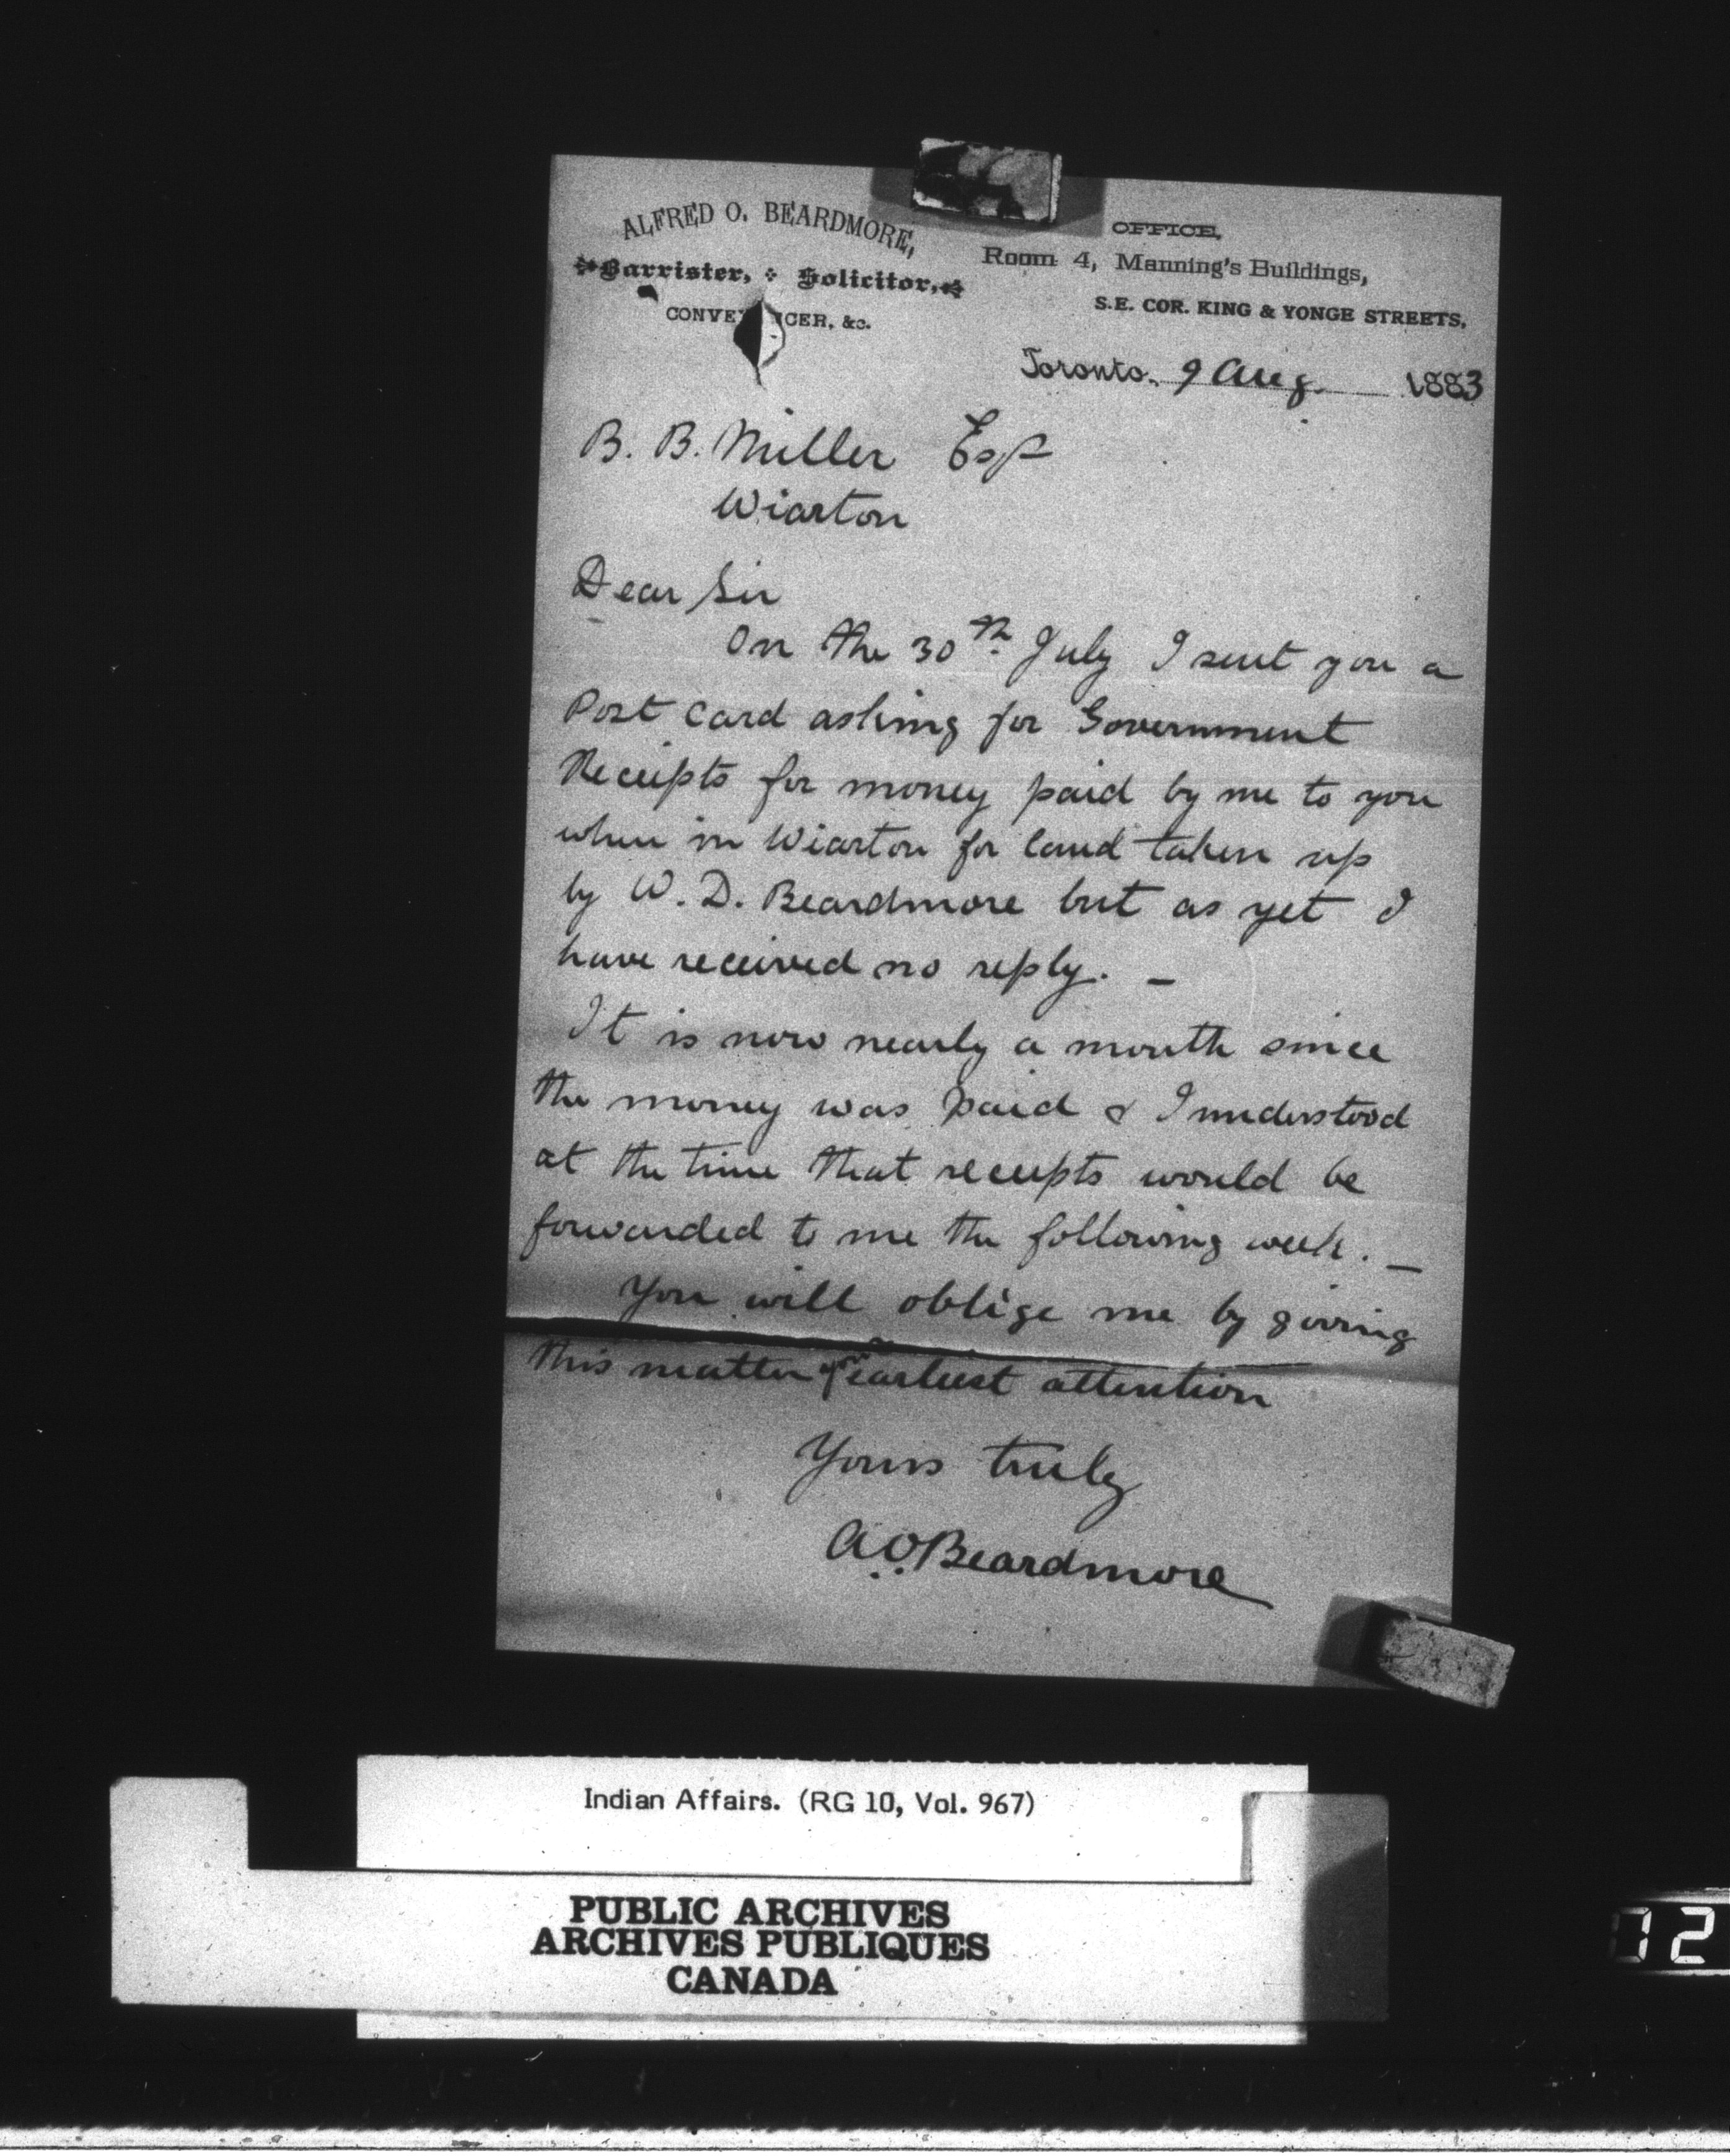 ALFRED O. BEARDMORE,
Barrister, Solicitor,
CONVEY NCER, &c.
OFFICE,
Room 4, Manning's Buildings,
S.E. COR. KING & YONGE STREETS,
Toronto, 9 Aug 1883
B. B. Miller Esq
Wiarton
Dear Sir
On the 30th July I sent you a
Post Card asking for Government
Receipts for money paid by me to you
when in Wiarton for land taken up
by W. D. Beardmore but as yet I
have received no reply. –
It is now nearly a month since
the money was paid & I understood
at the time that receipts would be
forwarded to me the following week. –
You will oblige me by giving
this matter your earliest attention
Yours truly
A.O. Beardmore
Indian Affairs. (RG 10, Vol. 967)
PUBLIC ARCHIVES
ARCHIVES PUBLIQUES
CANADA
72